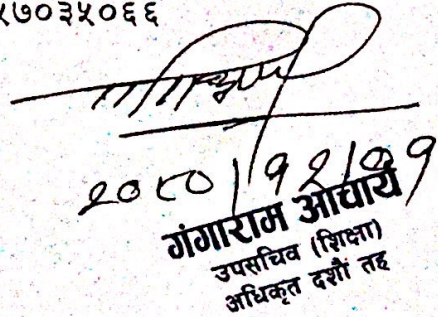 ५७०३५०६६
२०८०।१२।०१
गंगाराम आचार्य
उपसचिव (शिक्षा)
अधिकृत दशौं तह